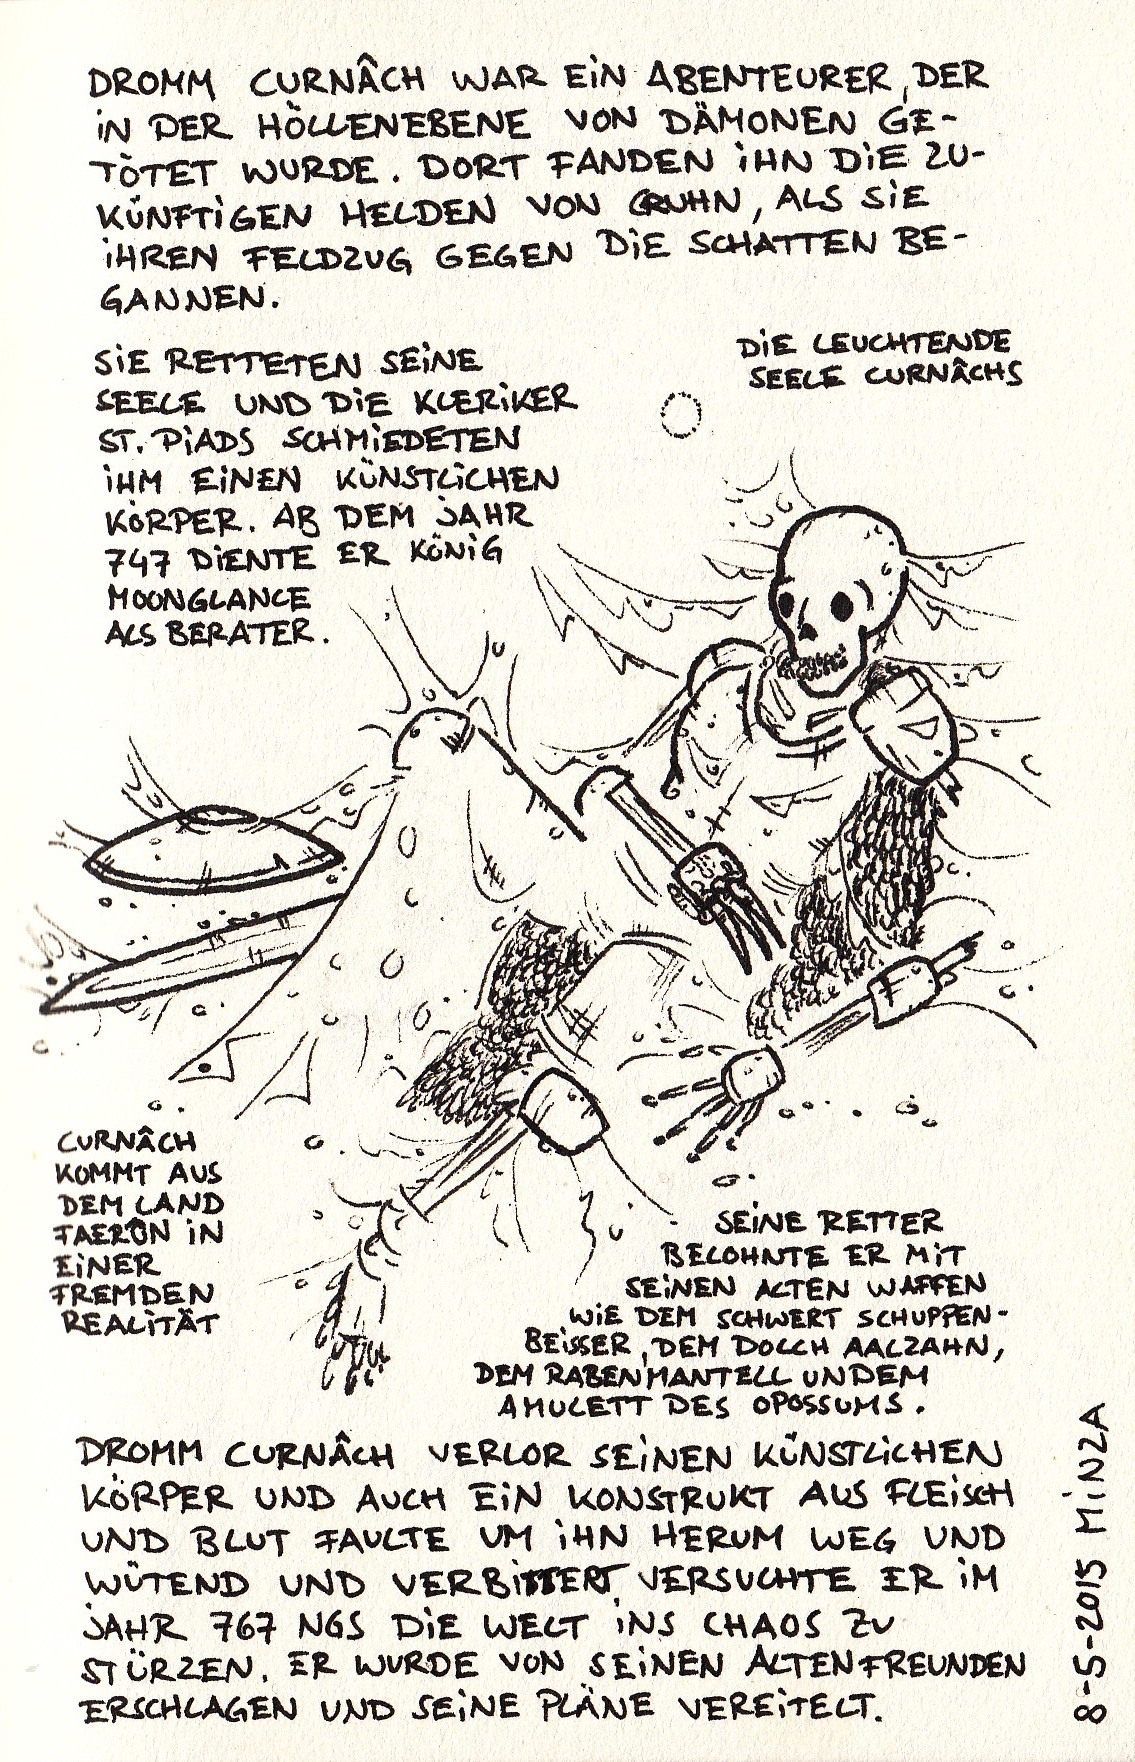 DROMM CURNÂCH WAR EIN ABENTEURER, DER
IN DER HÖLLENEBENE VON DÄMONEN GE-
TÖTET WURDE. DORT FANDEN IHN DIE ZU-
KÜNFTIGEN HELDEN VON GRUHN, ALS SIE
IHREN FELDZUG GEGEN DIE SCHATTEN BE-
GANNEN.
SIE RETTETEN SEINE
SEELE UND DIE KLERIKER
ST. PIADS SCHMIEDETEN
IHM EINEN KÜNSTLICHEN
KÖRPER. AB DEM JAHR
747 DIENTE ER KÖNIG
MOONGLANCE
ALS BERATER.
DIE LEUCHTENDE
SEELE CURNÂCHS
CURNÂCH
KOMMT AUS
DEM LAND
FAERÛN IN
EINER
FREMDEN
REALITÄT
SEINE RETTER
BELOHNTE ER MIT
SEINEN ALTEN WAFFEN
WIE DEM SCHWERT SCHUPPEN-
BEISSER, DEM DOLCH AALZAHN,
DEM RABENMANTELL UNDEM
AMULETT DES OPOSSUMS.
DROMM CURNÂCH VERLOR SEINEN KÜNSTLICHEN
KÖRPER UND AUCH EIN KONSTRUKT AUS FLEISCH
UND BLUT FAULTE UM IHN HERUM WEG UND
WÜTEND UND VERBITTERT, VERSUCHTE ER IM
JAHR 767 NGS DIE WELT INS CHAOS ZU
STÜRZEN. ER WURDE VON SEINEN ALTEN FREUNDEN
ERSCHLAGEN UND SEINE PLÄNE VEREITELT.
8-5-2015 MINZA